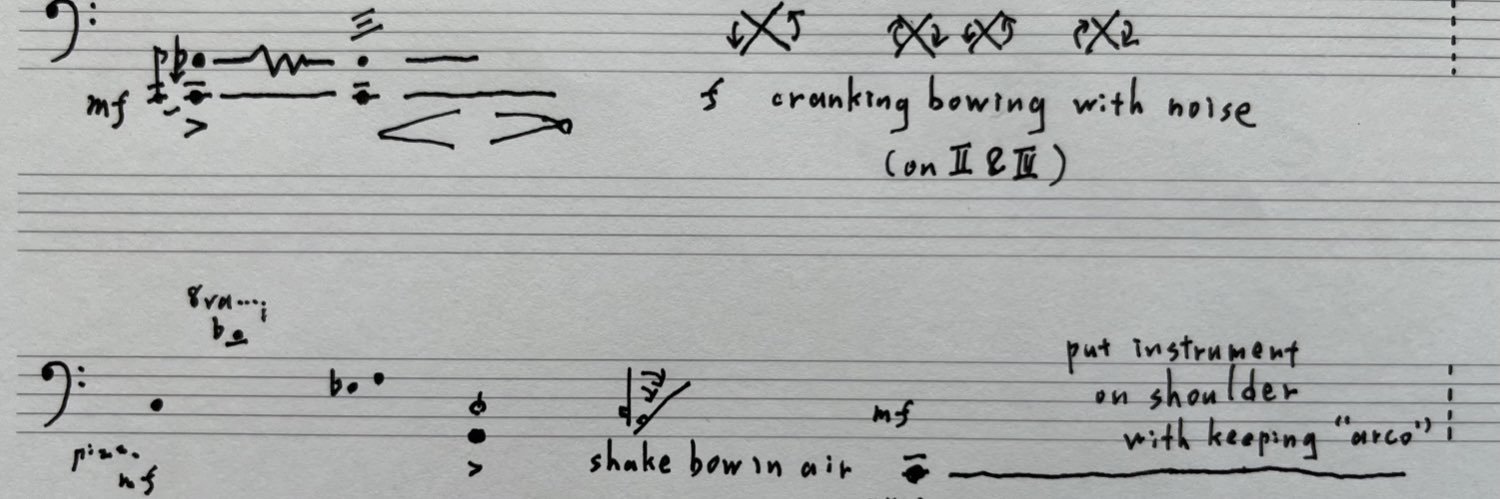 mf
f cranking bowing with noise
(on II & IV)
8va
pizz.
mf
shake bow in air
mf
put instrument
on shoulder
with keeping "arco"